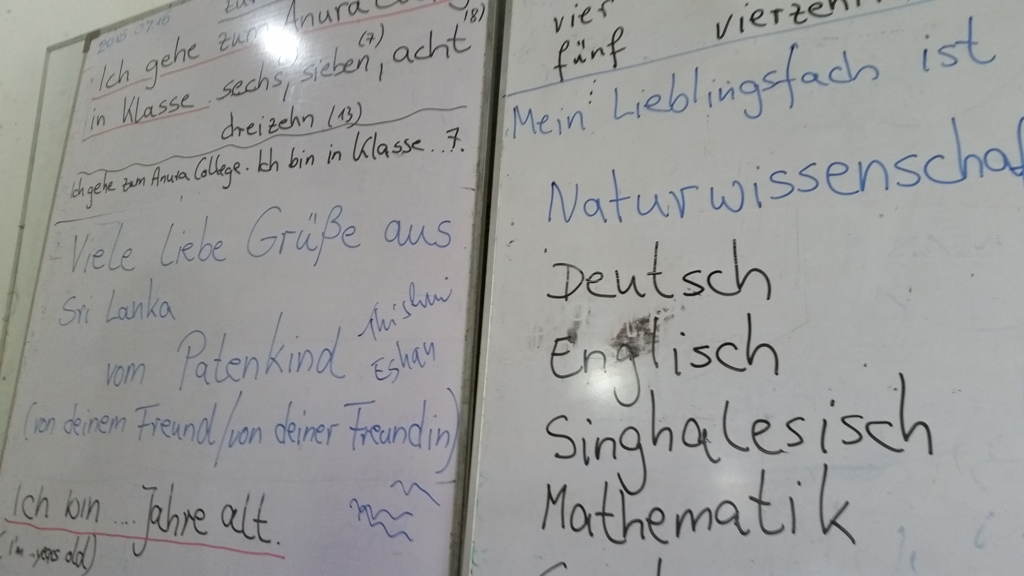 zur
2015 07 16
Anura College
Ich gehe zum
in Klasse sechs, sieben, (7) acht (8)
dreizehn (13)
Ich gehe zum Anura College. Ich bin in Klasse . 7.
Viele liebe Grüße aus
Sri Lanka
vom Patenkind
Eshan
(von deinem Freund/von deiner Freundin)
Ich bin .... Jahre alt.
(I'm - years old)
vier
fünf
vierzehn
Mein Lieblingsfach ist
Naturwissenschaf
Deutsch
Englisch
Singhalesisch
Mathematik